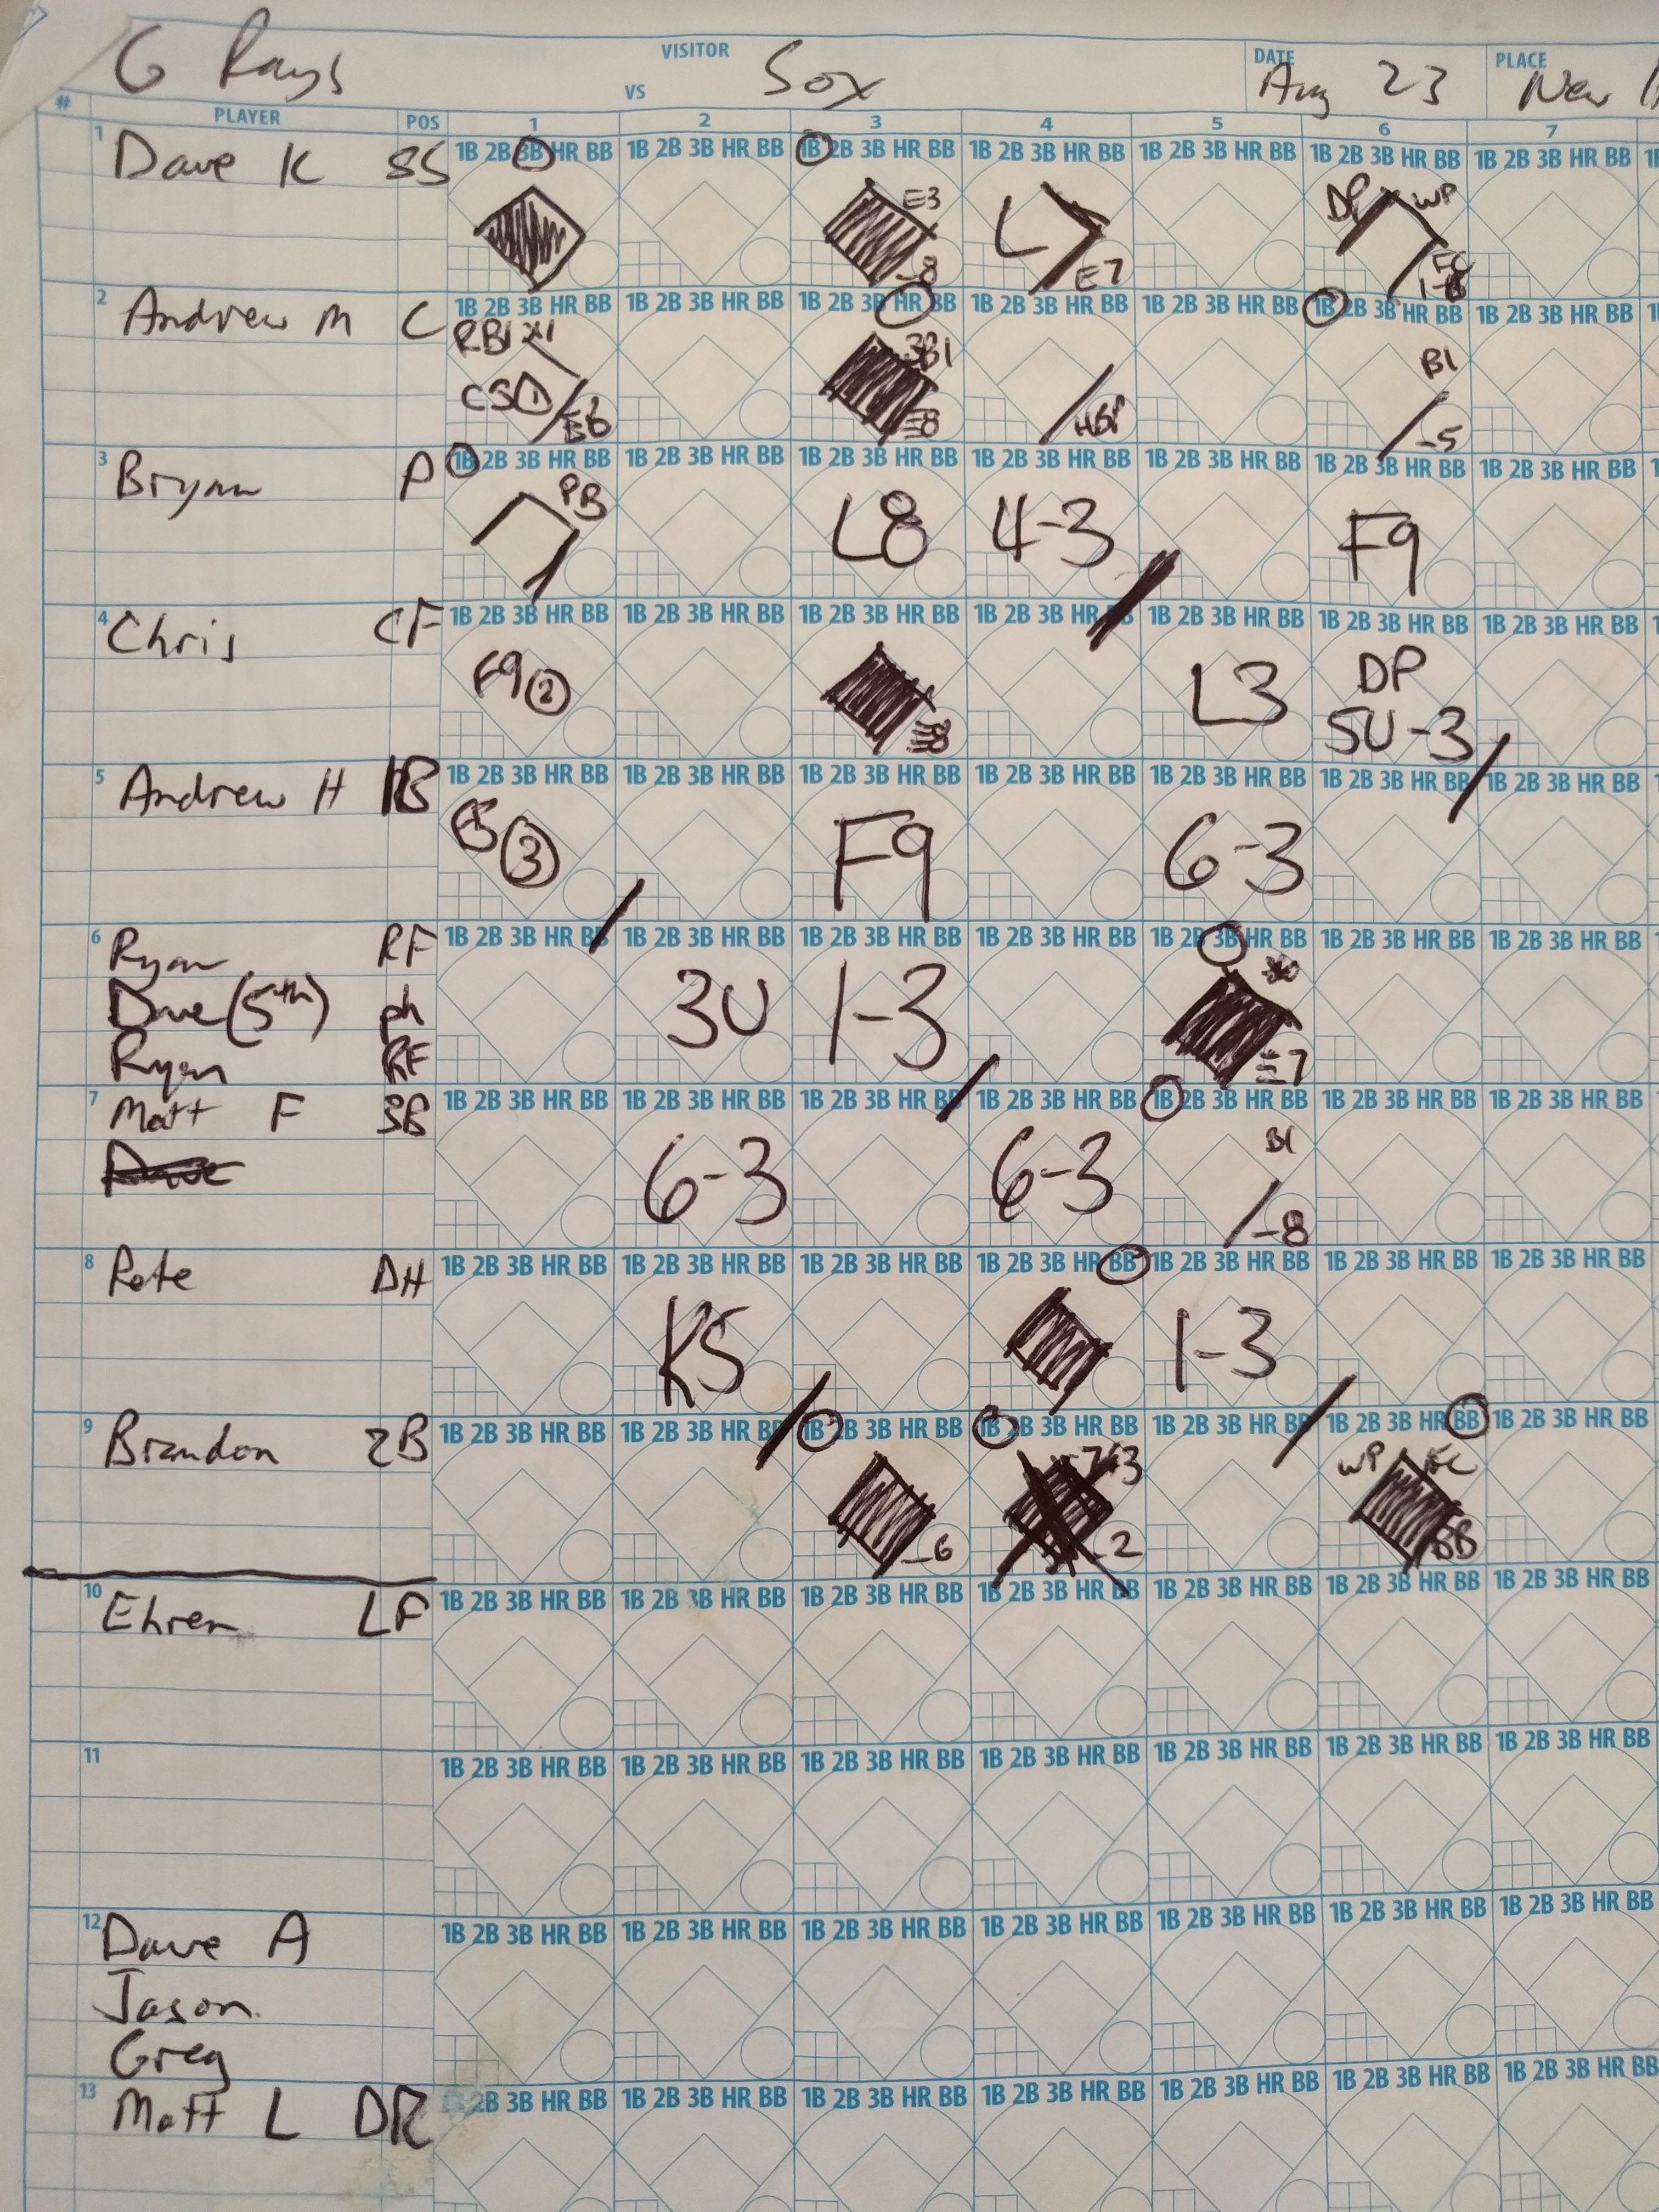 G Rays VISITOR VS Sox DATE Aug 23 PLACE New
# PLAYER POS 1 2 3 4 5 6 7
1 Dave K SS 1B 2B 3B HR BB 1B 2B 3B HR BB 1B 2B 3B HR BB 1B 2B 3B HR BB 1B 2B 3B HR BB 1B 2B 3B HR BB 1B 2B 3B HR BB
E3 L DP WP
-8 E7 FC
2 Andrew M C 1B 2B 3B HR BB 1B 2B 3B HR BB 1B 2B 3B HR BB 1B 2B 3B HR BB 1B 2B 3B HR BB 1B 2B 3B HR BB 1B 2B 3B HR BB
RBI X1 3BI BI
CS 1 E6 8 HBP -5
3 Bryan P 1B 2B 3B HR BB 1B 2B 3B HR BB 1B 2B 3B HR BB 1B 2B 3B HR BB 1B 2B 3B HR BB 1B 2B 3B HR BB 1B 2B 3B HR BB
PB L8 4-3 F9
4 Chris CF 1B 2B 3B HR BB 1B 2B 3B HR BB 1B 2B 3B HR BB 1B 2B 3B HR BB 1B 2B 3B HR BB 1B 2B 3B HR BB 1B 2B 3B HR BB
F9 2 8 L3 DP
5U-3
5 Andrew H 1B 1B 2B 3B HR BB 1B 2B 3B HR BB 1B 2B 3B HR BB 1B 2B 3B HR BB 1B 2B 3B HR BB 1B 2B 3B HR BB 1B 2B 3B HR BB
3 F9 6-3
6 Ryan RF 1B 2B 3B HR BB 1B 2B 3B HR BB 1B 2B 3B HR BB 1B 2B 3B HR BB 1B 2B 3B HR BB 1B 2B 3B HR BB 1B 2B 3B HR BB
Dave (5th) ph 3U 1-3
Ryan RF 7
7 Matt F 3B 1B 2B 3B HR BB 1B 2B 3B HR BB 1B 2B 3B HR BB 1B 2B 3B HR BB 1B 2B 3B HR BB 1B 2B 3B HR BB 1B 2B 3B HR BB
6-3 6-3 BI
-8
8 Pete DH 1B 2B 3B HR BB 1B 2B 3B HR BB 1B 2B 3B HR BB 1B 2B 3B HR BB 1B 2B 3B HR BB 1B 2B 3B HR BB 1B 2B 3B HR BB
KS 1-3
9 Brandon 2B 1B 2B 3B HR BB 1B 2B 3B HR BB 1B 2B 3B HR BB 1B 2B 3B HR BB 1B 2B 3B HR BB 1B 2B 3B HR BB 1B 2B 3B HR BB
WP FC
-6 -2 BB
10 Ehren LF 1B 2B 3B HR BB 1B 2B 3B HR BB 1B 2B 3B HR BB 1B 2B 3B HR BB 1B 2B 3B HR BB 1B 2B 3B HR BB 1B 2B 3B HR BB
11 1B 2B 3B HR BB 1B 2B 3B HR BB 1B 2B 3B HR BB 1B 2B 3B HR BB 1B 2B 3B HR BB 1B 2B 3B HR BB 1B 2B 3B HR BB
12 Dave A 1B 2B 3B HR BB 1B 2B 3B HR BB 1B 2B 3B HR BB 1B 2B 3B HR BB 1B 2B 3B HR BB 1B 2B 3B HR BB 1B 2B 3B HR BB
Jason
Greg
13 Matt L DR 2B 3B HR BB 1B 2B 3B HR BB 1B 2B 3B HR BB 1B 2B 3B HR BB 1B 2B 3B HR BB 1B 2B 3B HR BB 1B 2B 3B HR BB